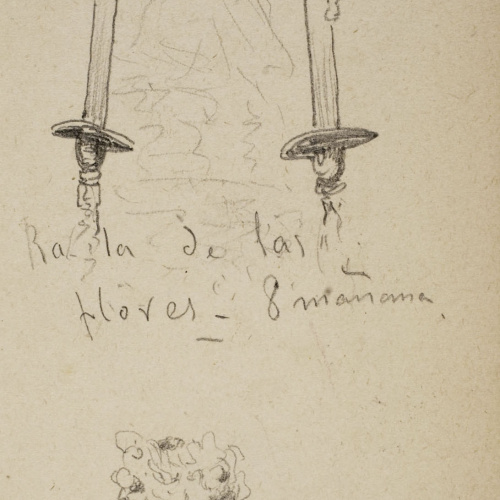 de las
flores - 8 mañana.